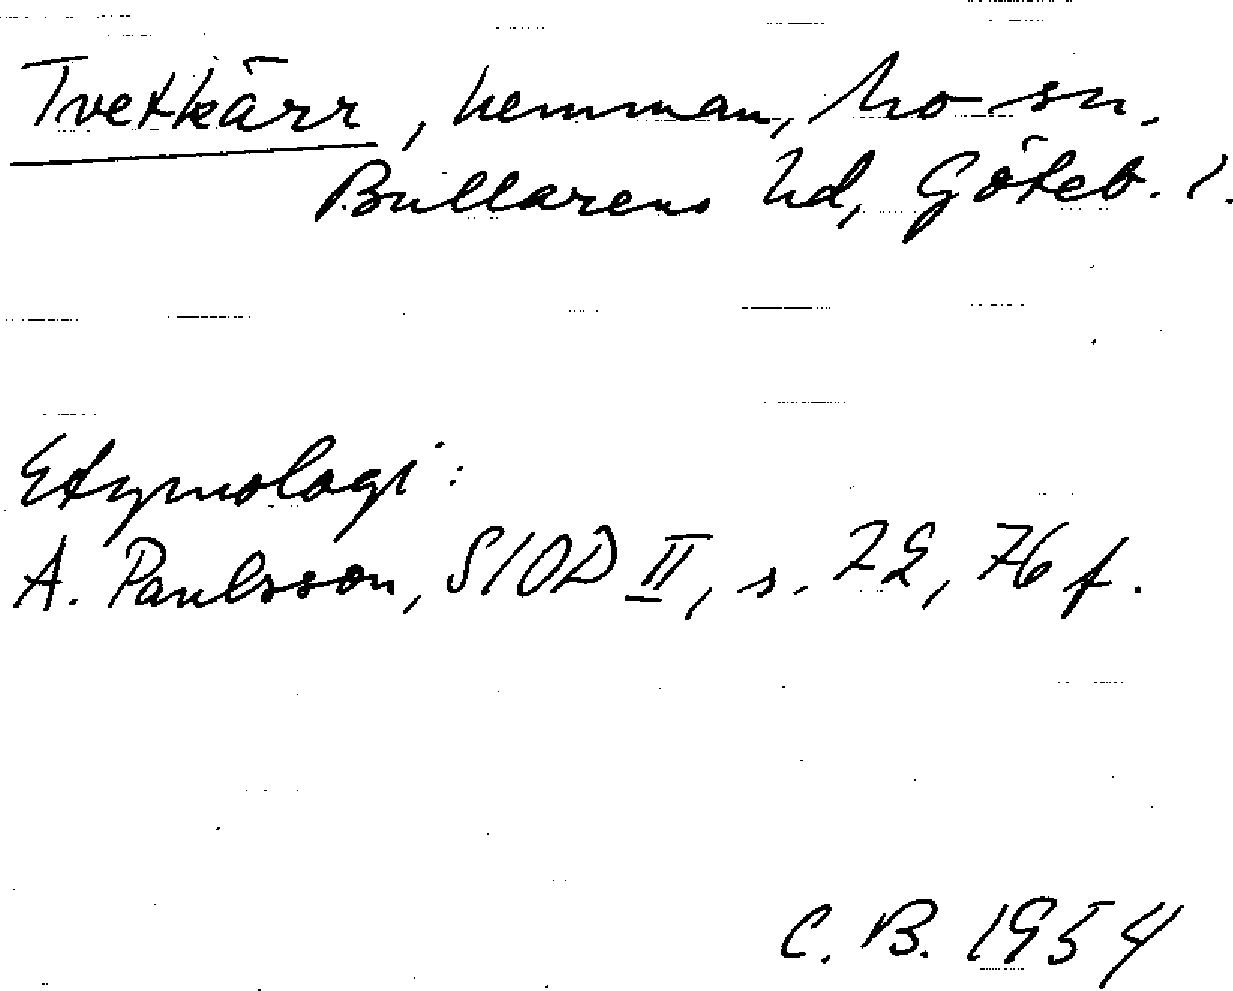 Tvetkärr, hemman, Mo sn.
Bullarens hd, Göteb. l.
Etymologi:
A. Paulsson, SIOD II, s. 72, 76 f.
C. B. 1954